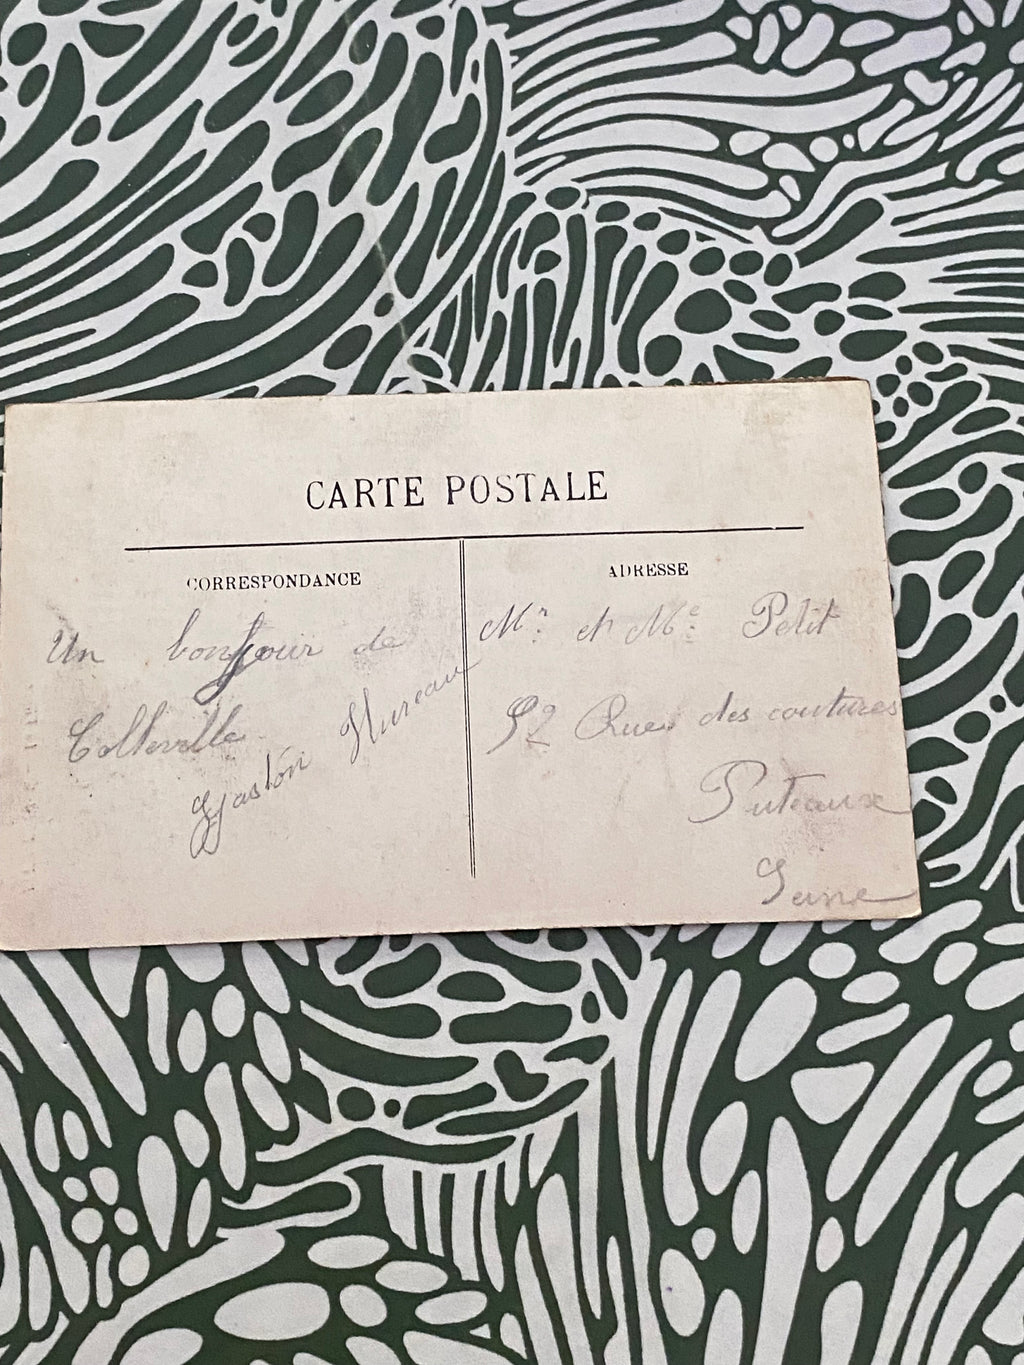 CARTE POSTALE
CORRESPONDANCE
Un bonjour de
Colleville
Gaston Hureau
ADRESSE
Mr. et Me. Petit
52 Rues des coutures
Puteaux
Seine